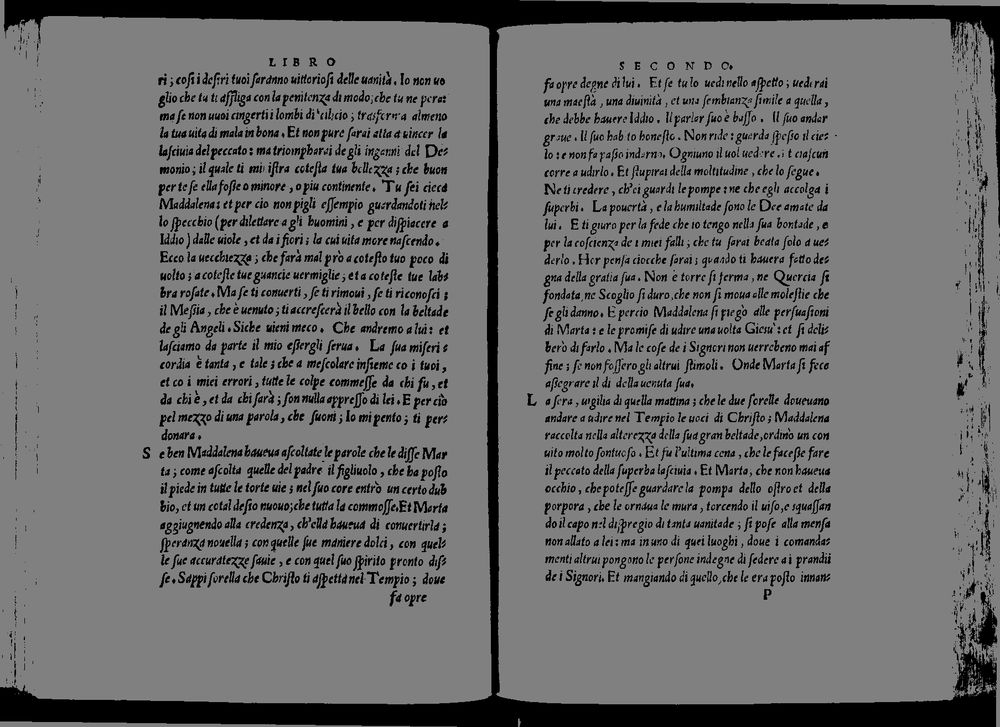 LIBRO
ri; cosi i desiri tuoi saranno uittoriosi delle uanità. Io non uo
glio che tu ti affliga con la penitenza di modo; che tu ne pera:
ma se non uuoi cingerti i lombi di cilicio; trasforma almeno
la tua uita di mala in bona. Et non pure sarai atta a uincer la
lasciuia del peccato: ma triompharai de gli inganni del De=
monio; il quale ti ministra cotesta tua bellezza; che buon
per te se ella fosse o minore, o piu continente. Tu sei cieca
Maddalena: et per cio non pigli essempio guardandoti nel=
lo specchio (per dilettare a gli huomini, e per dispiacere a
Iddio) dalle uiole, et da i fiori; la cui uita more nascendo.
Ecco la uecchiezza; che farà mal prò a cotesto tuo poco di
uolto; a coteste tue guancie uermiglie; et a coteste tue lab=
bra rosate. Ma se ti conuerti, se ti rimoui, se ti riconosci;
il Messia, che è uenuto; ti accrescerà il bello con la beltade
de gli Angeli. Siche uieni meco. Che andremo a lui: et
lasciamo da parte il mio essergli serua. La sua miseri=
cordia è tanta, e tale; che a mescolare insieme co i tuoi,
et co i miei errori, tutte le colpe commesse da chi fu, et
da chi è, et da chi sarà; son nulla appresso di lei. E per ciò
pel mezzo di una parola, che suoni; Io mi pento; ti per=
donara.
S e ben Maddalena haueua ascoltate le parole che le disse Mar
ta; come ascolta quelle del padre il figliuolo, che ha posto
il piede in tutte le torte uie; nel suo core entrò un certo dub
bio, et un cotal desio nuouo; che tutta la commosse. Et Marta
aggiugnendo alla credenza, ch'ella haueua di conuertirla;
speranza nouella; con quelle sue maniere dolci, con quel=
le sue accuratezze sauie, e con quel suo spirito pronto dis=
se. Sappi sorella che Christo ti aspetta nel Tempio; doue
fa opre
SECONDO.
fa opre degne di lui. Et se tu lo uedi nello aspetto; uederai
una maestà, una diuinità, et una sembianza simile a quella,
che debbe hauere Iddio. Il parlar suo è basso. Il suo andar
graue. Il suo habito honesto. Non ride: guarda spesso il cie=
lo: e non fa passo indarno. Ogniuno il uol uedere. et ciascun
corre a udirlo. Et stupirai della moltitudine, che lo segue.
Ne ti credere, ch'ei guardi le pompe: ne che egli accolga i
superbi. La pouertà, e la humiltade sono le Dee amate da
lui. E ti giuro per la fede che io tengo nella sua bontade, e
per la coscienza de i miei falli; che tu sarai beata solo a ue=
derlo. Hor pensa cioche sarai; quando ti hauera fatto de=
gna della gratia sua. Non è torre si ferma, ne Quercia si
fondata, ne Scoglio si duro, che non si moua alle molestie che
se gli danno. E percio Maddalena si piegò alle persuasioni
di Marta: e le promise di udire una uolta Giesù: et si deli=
berò di farlo. Ma le cose de i Signori non uerrebeno mai af
fine; se non fossero gli altrui stimoli. Onde Marta si fece
assegrare il di della uenuta sua.
L a sera, uigilia di quella mattina; che le due sorelle doueuano
andare a udire nel Tempio le uoci di Christo; Maddalena
raccolta nella alterezza della sua gran beltade, ordinò un con
uito molto sontuoso. Et fu l'ultima cena, che le facesse fare
il peccato della superba lasciuia. Et Marta, che non haueua
occhio, che potesse guardare la pompa dello ostro et della
porpora, che le ornaua le mura, torcendo il uiso, e squassan
do il capo nel dispregio di tanta uanitade; si pose alla mensa
non allato a lei: ma in uno di quei luoghi, doue i comanda=
menti altrui pongono le persone indegne di sedere a i prandii
de i Signori. Et mangiando di quello, che le era posto innan=
P